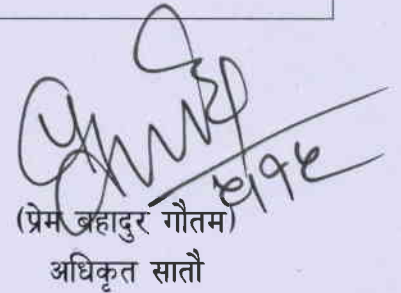 ५१९५
(प्रेम बहादुर गौतम)
अधिकृत सातौ